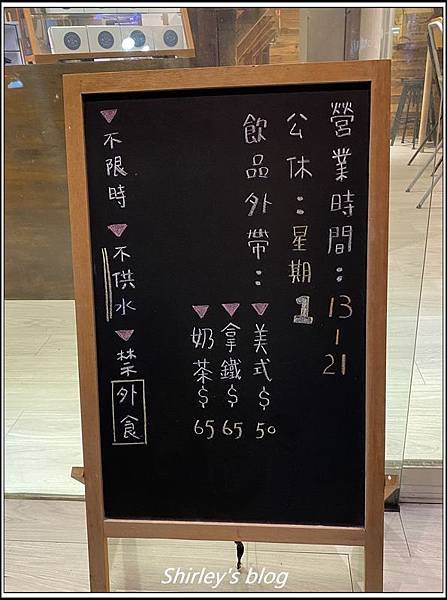 營業時間：13-21
公休：星期1
飲品外帶：
▼美式$50
▼拿鐵$65
▼奶茶$65
▼不限時 ▼不供水 ▼禁外食
Shirley's blog